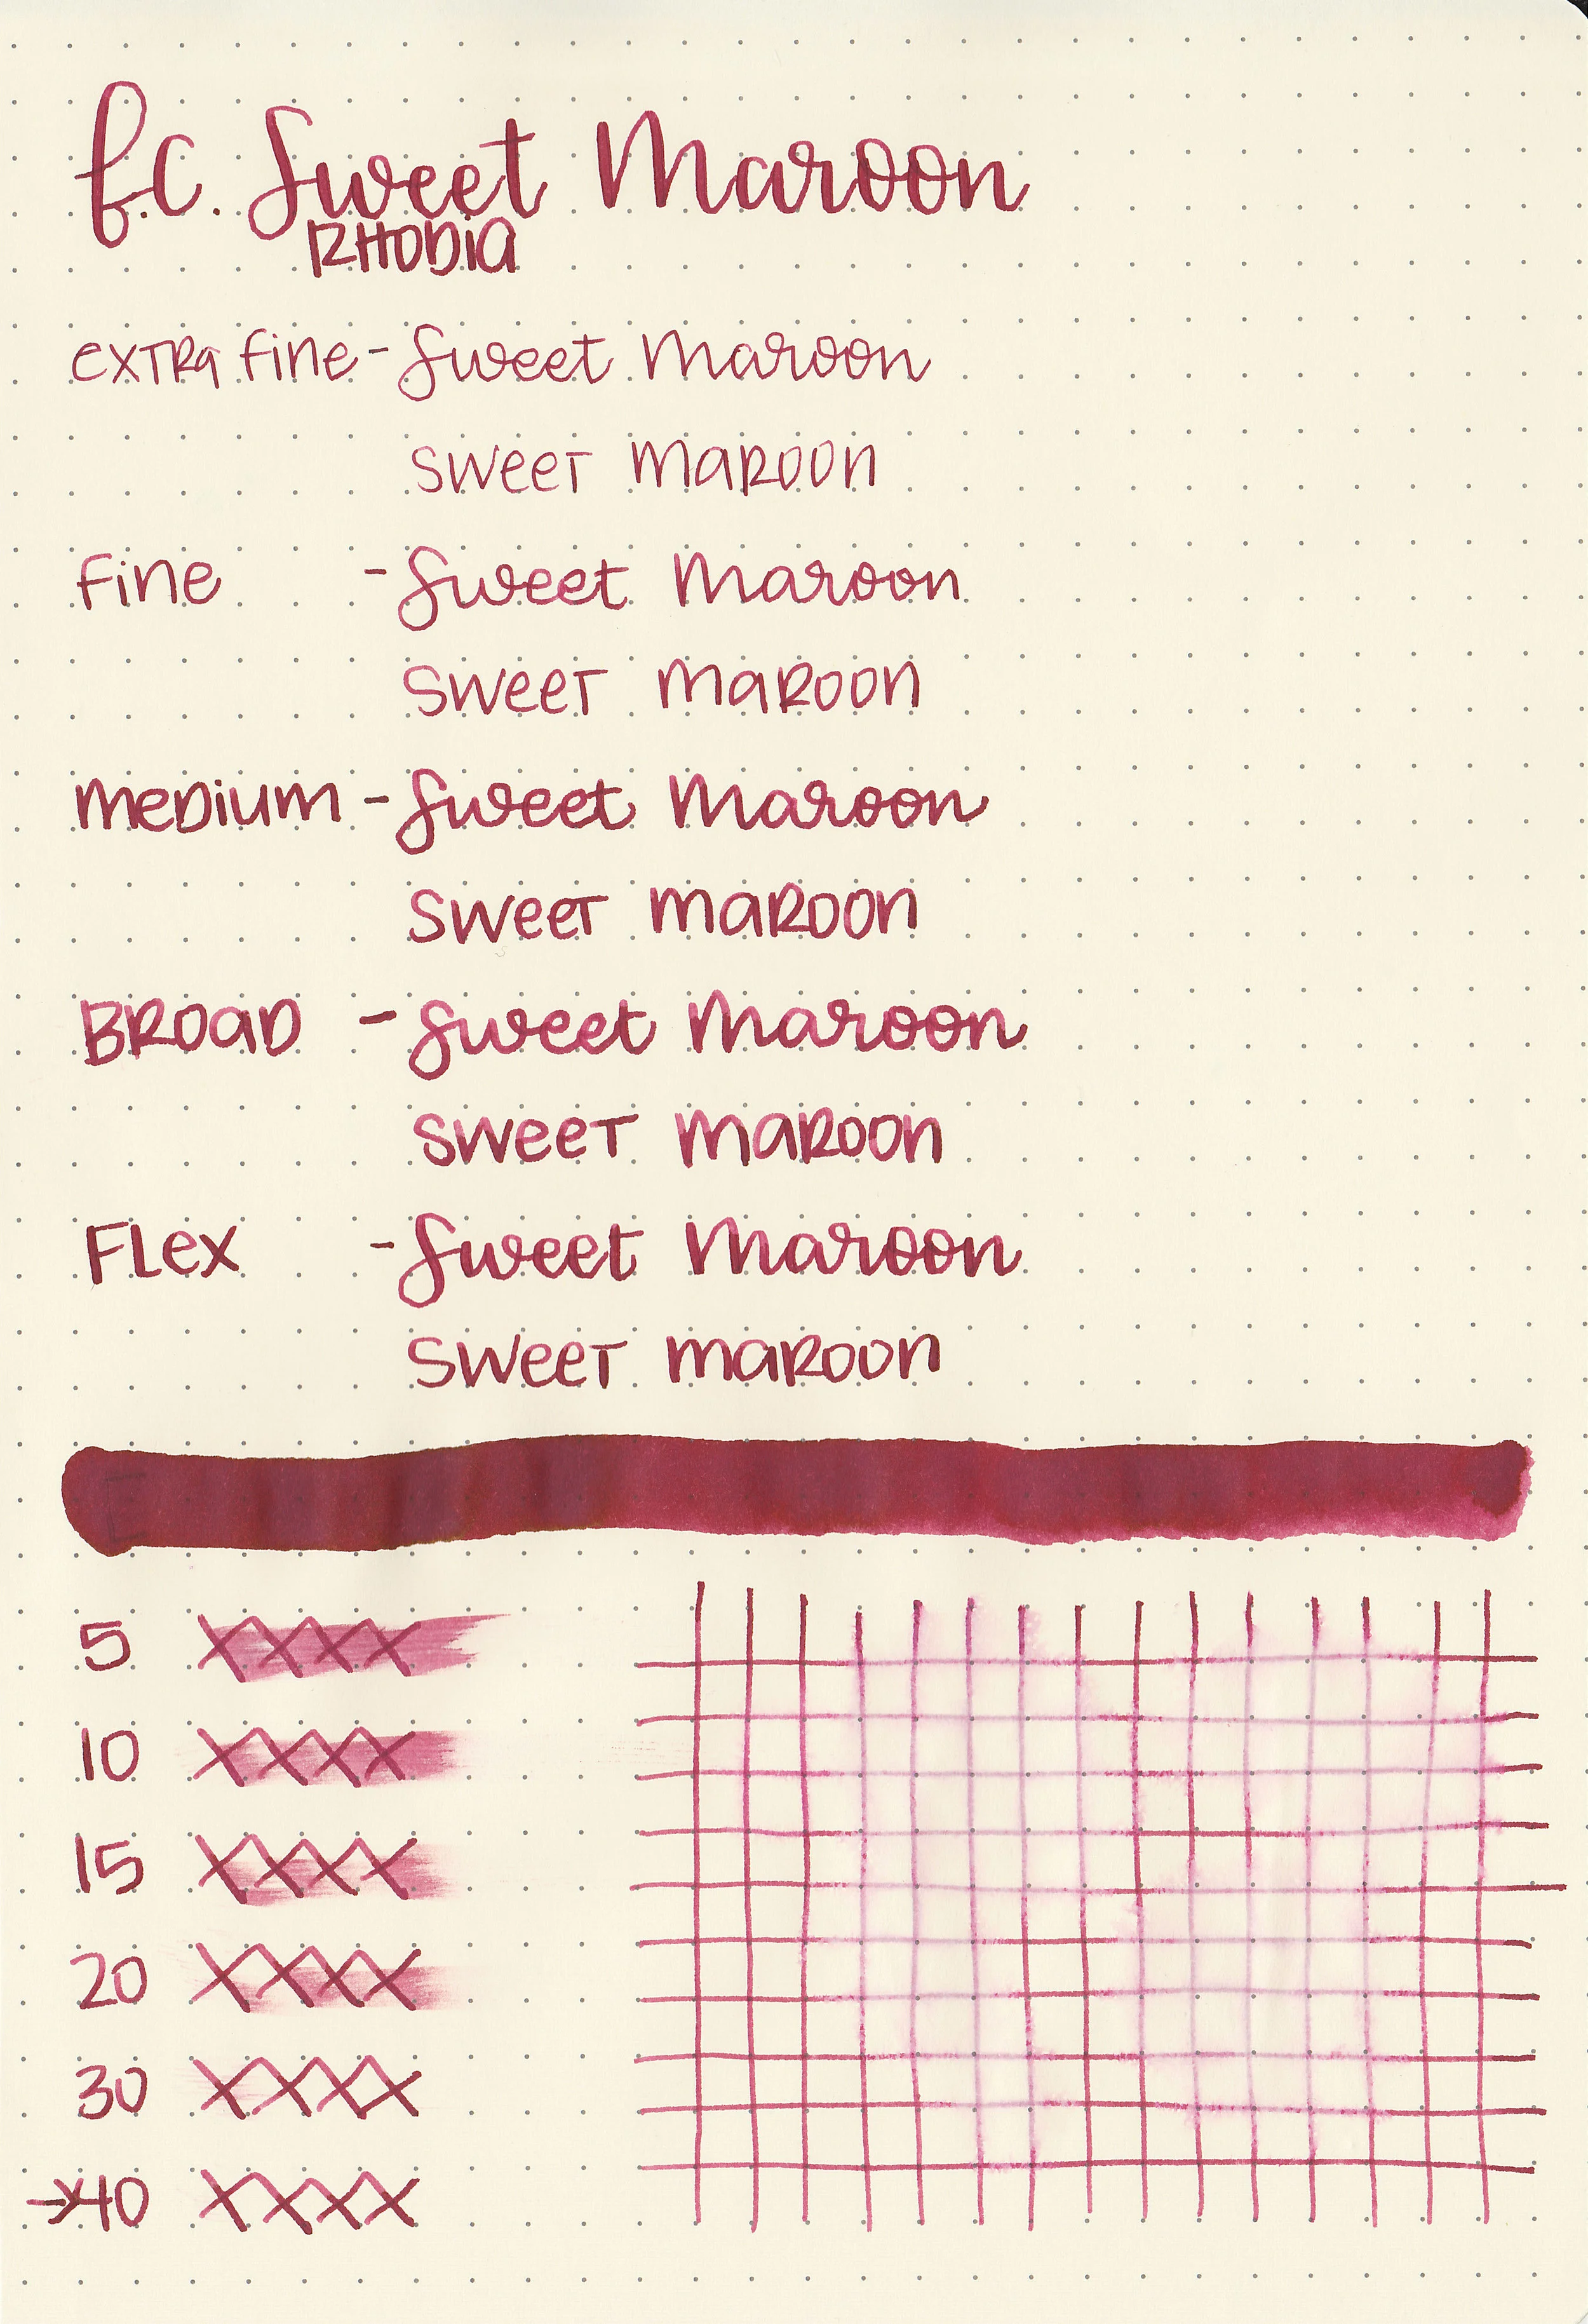 f.c. Sweet Maroon
RHODIA
extra fine - Sweet Maroon
sweet maroon
fine - Sweet Maroon
sweet maroon
medium - Sweet Maroon
sweet maroon
Broad - Sweet Maroon
sweet maroon
Flex - Sweet Maroon
sweet maroon
5 XXXX
10 XXXX
15 XXXX
20 XXXX
30 XXXX
→40 XXXX